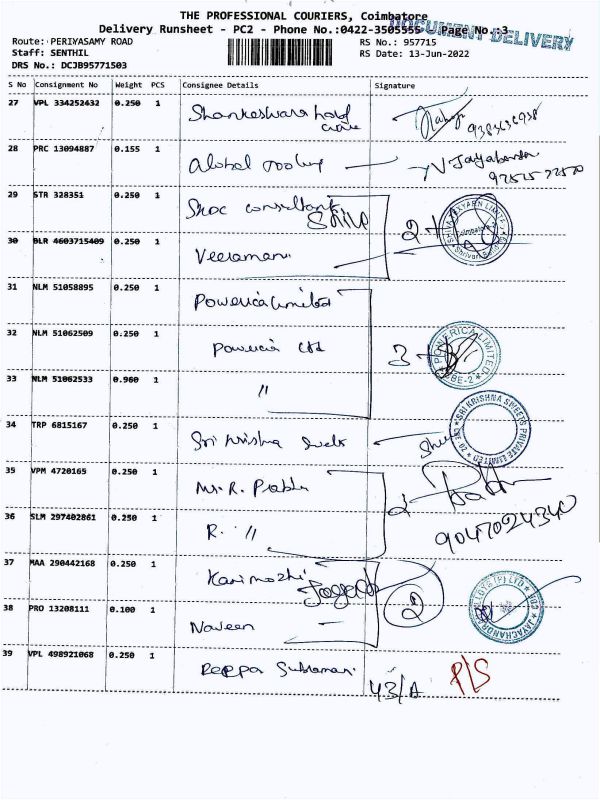 THE PROFESSIONAL COURIERS, Coimbatore
Delivery Runsheet - PC2 - Phone No.:0422-3505555 Page No.:3
DOCUMENT DELIVERY
Route: PERIYASAMY ROAD RS No.: 957715
Staff: SENTHIL RS Date: 13-Jun-2022
DRS No.: DCJB95771503
S No Consignment No Weight PCS Consignee Details Signature
27 VPL 334252432 0.250 1
28 PRC 13094887 0.155 1
29 STR 328351 0.250 1
30 BLR 4603715409 0.250 1 Veeramani
SHIVA TEXYARN LIMITED
Coimbatore
31 NLM 51058895 0.250 1 Powerica Limited
32 NLM 51062509 0.250 1 Ltd 3
POWERICA LIMITED
CBE-2
33 NLM 51062533 0.960 1 "
34 TRP 6815167 0.250 1 Sri Krishna
SRI KRISHNA SWEETS PRIVATE LIMITED
35 VPM 4720165 0.250 1 Mr. R. Prabhu 2
36 SLM 297402861 0.250 1 R. " 9047024340
37 MAA 290442168 0.250 1 Kanimozhi 2
38 PRO 13208111 0.100 1 Naveen
39 VPL 498921068 0.250 1 43/A P/S